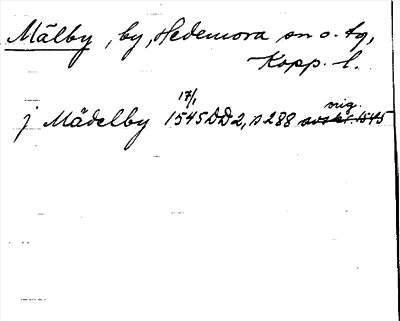 Mälby, by, Hedemora sn o. tg,
Kopp. l.
17/1 orig.
j Mädelby 1545 DD 2, s 288 avskr 1545